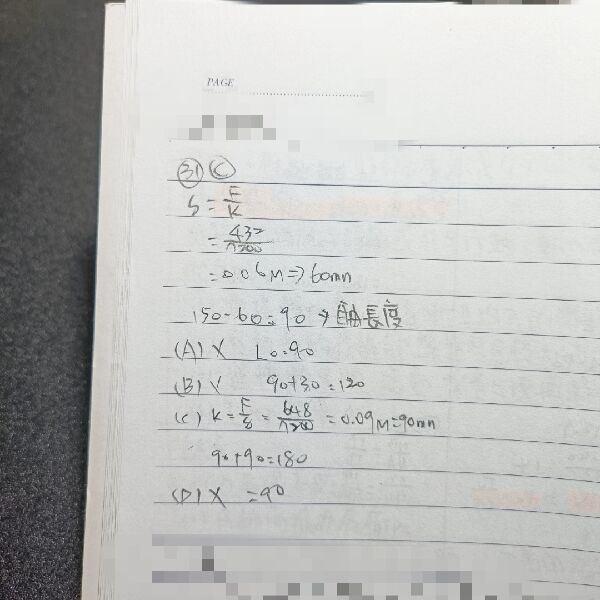 PAGE
31 C
δ = F/K
= 432/7200
= 0.06M ⇒ 60mm
150-60=90 → 軸長度
(A) X L0=90
(B) X 90+30=120
(C) K = F/δ = 648/7200 = 0.09M=90mm
90+90=180
(D) X =90